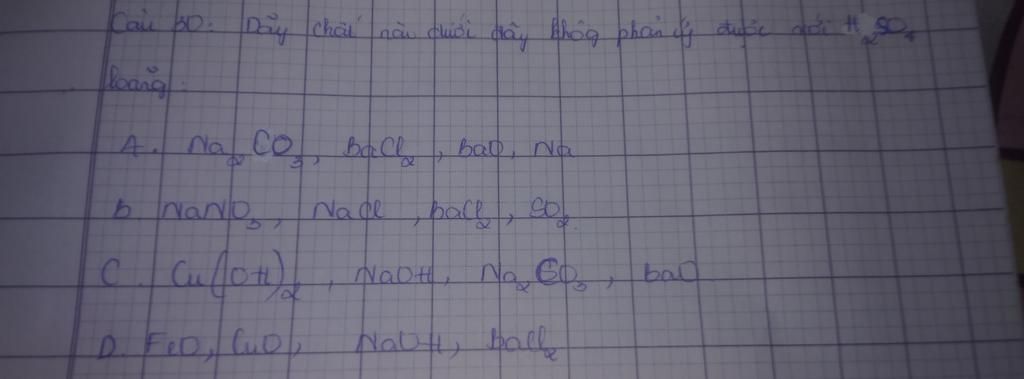 Câu 30: Dãy chất nào dưới đây không phản ứng được với H₂SO₄
loãng:
A. Na₂CO₃, BaCl₂, BaO, Na
B. NaNO₃, NaCl, BaCl₂, SO₂.
C. Cu(OH)₂, NaOH, Na₂CO₃, BaO
D. FeO, CuO, NaOH, BaCl₂